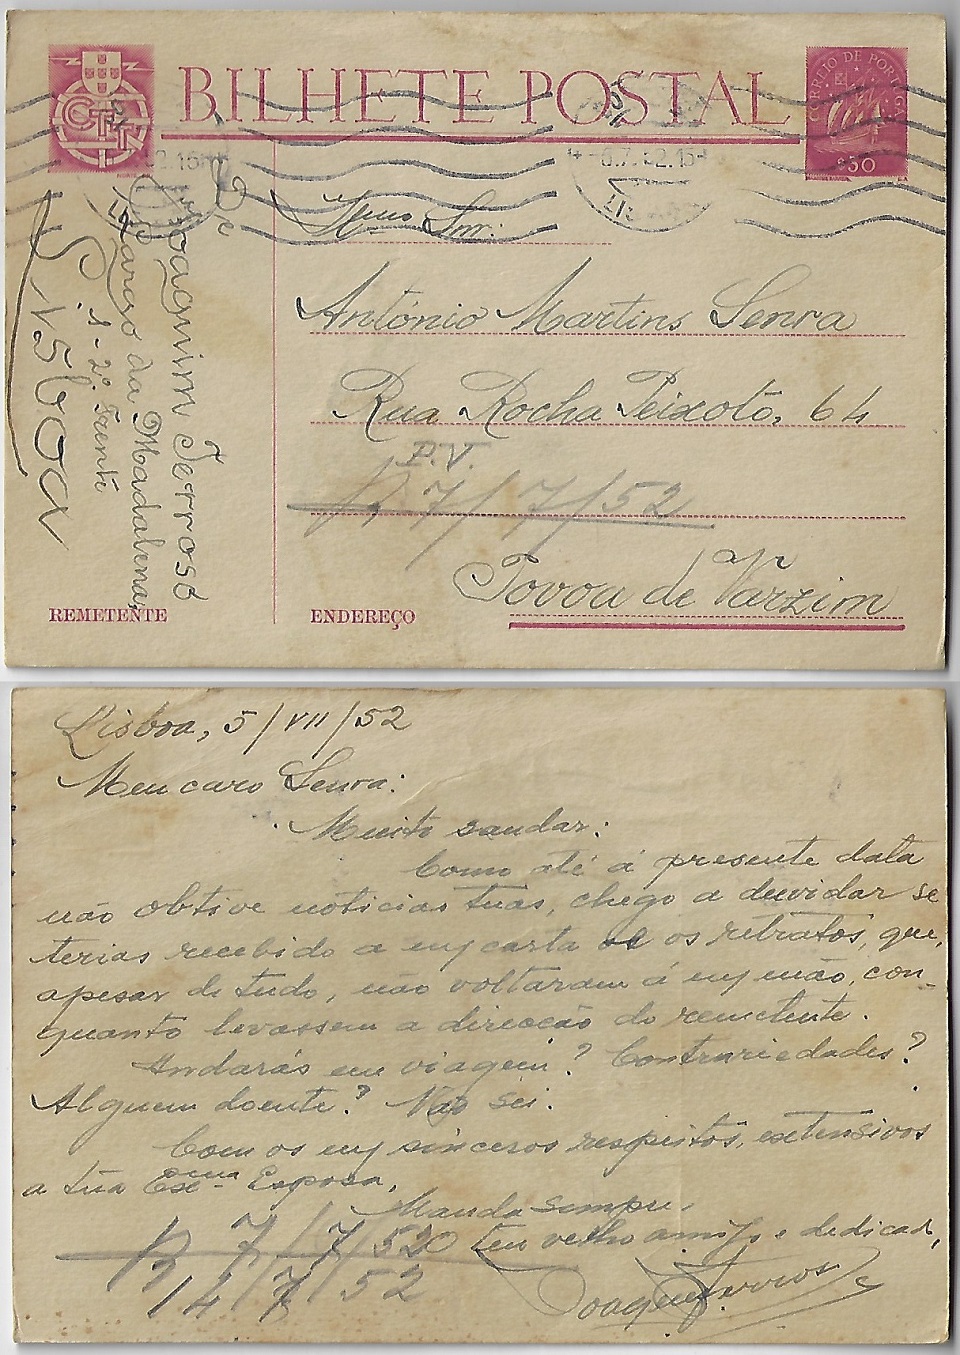 BILHETE POSTAL
CTT
CORREIO DE PORTUGAL
$50
De
Joaquim Terroso
Largo da Madalena,
1-2º. Frente
Lisboa
REMETENTE
Exmo Snr:
António Martins Senra
Rua Rocha Peixoto, 64
P.V.
R 7/7/52
Povoa de Varzim
ENDEREÇO
Lisboa, 5/VII/52
Meu caro Senra:
Muito saudar:
Como até á presente data
não obtive noticias tuas, chego a duvidar se
terias recebido a m/ carta e os retratos, que,
apesar de tudo, não voltaram á m/ mão, con-
quanto levassem a direcção do remetente.
Andarás em viagem? Contrariedades?
Alguem doente? Não sei.
Com os m/ sinceros respeitos, extensivos
a tua Exma Esposa,
Manda sempre,
O teu velho amigo e dedicado,
Joaquim Terroso
R 7/7/52
14/7/52